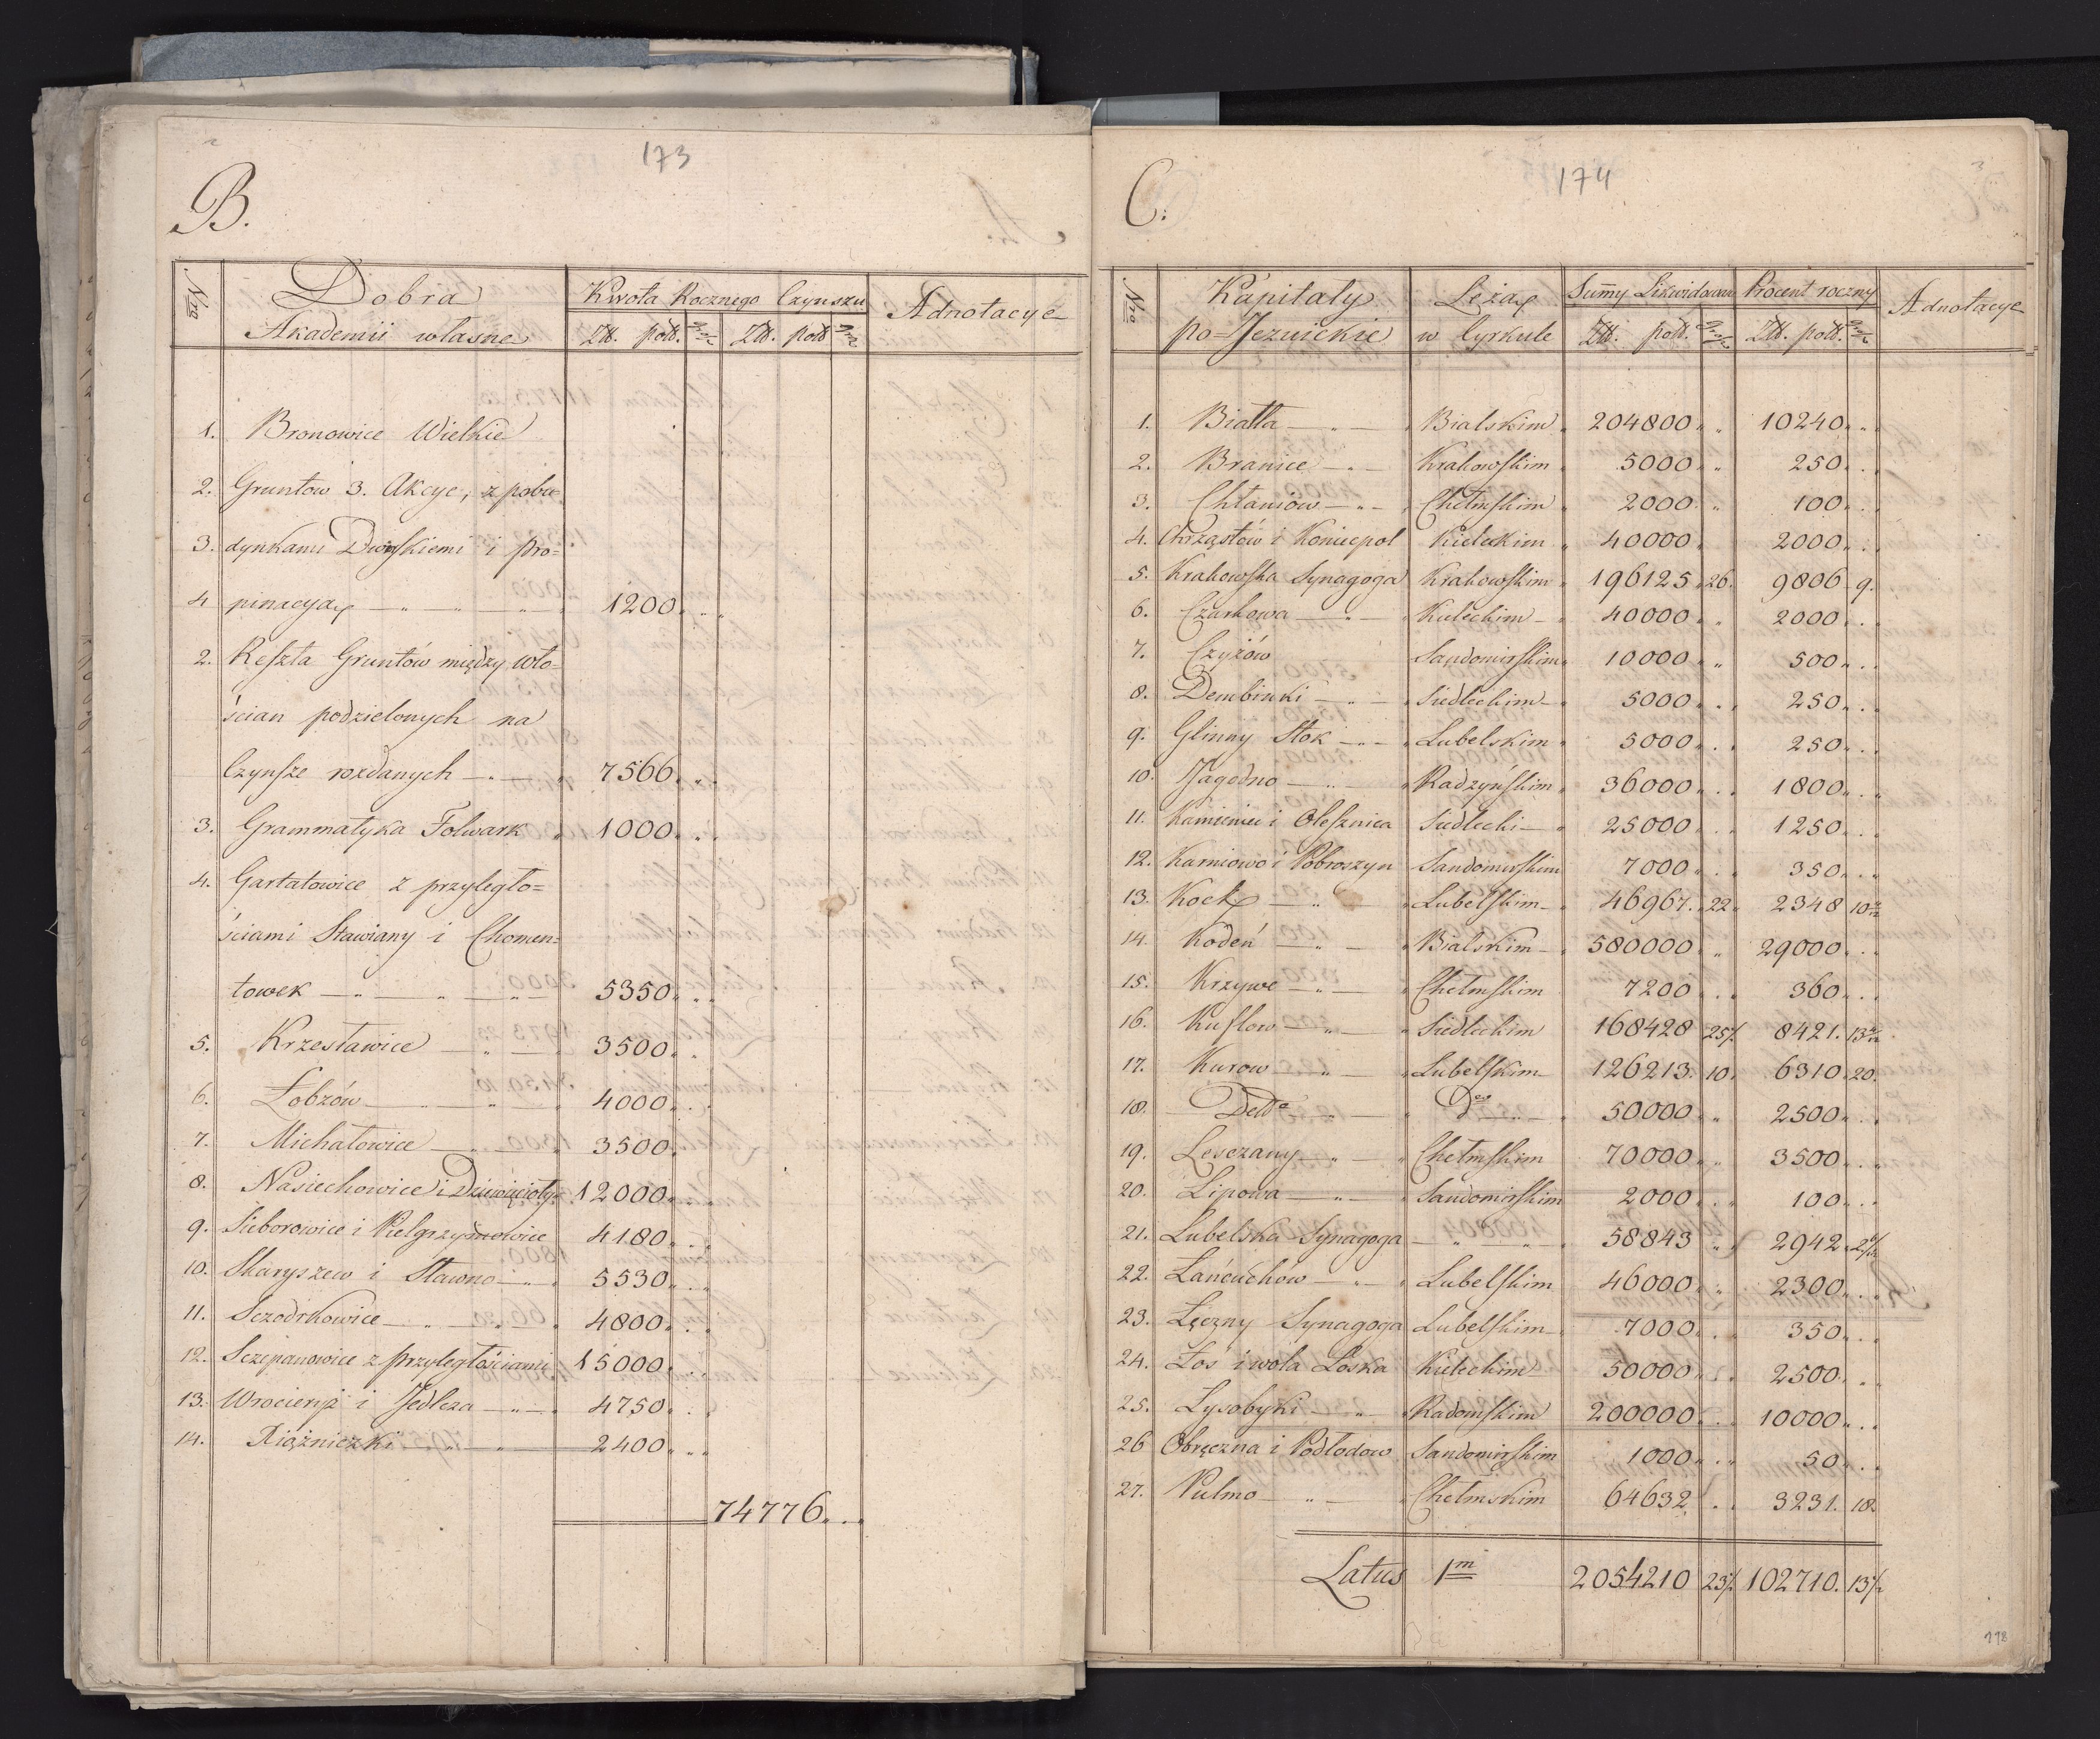 173
B.
Nro Dobra Kwota Rocznego Czynszu Adnotacye
Akademii własne Złł. polł. Złł. polł.
1. Bronowice Wielkie
2. Gruntow 3. Akcye, z pobu-
3. dynkami Dworskiemi i pro=
4 pinacyą 1200
2. Reszta Gruntów między wło-
ścian podzielonych na
Czynsze rozdanych 7566
3. Grammatyka Folwark 1000
4. Gartatowice z przyległo=
ściami Stawiany i Chomen=
towek 5350
5. Krzesławice 3500
6. Łobzów 4000
7. Michałowice 3500
8. Nasiechowice i Dziewięcioły 12000
9. Sieborowice i Pielgrzymowice 4180
10. Skaryszew i Sławno 5530
11. Sczodrkowice 4800
12. Sczepanowice z przyległościami 15000
13. Wrocieryż i Jedlcza 4750
14. Xiążniczki 2400
74776
174
3
C.
Nro Kápitały Leżą Summy Likwidowa Procent roczny Adnotacye
po=Jezuickie w Cyrkule Złł. polł. Złł. polł.
1. Biała Bialskim 204800 10240
2. Branice Krakowskim 5000 250
3. Chłaniów Chełmskim 2000 100
4. Chrząstów i Koniecpol Kieleckim 40000 2000
5. Krakowska Synagoga Krakowskim 196125 26. 9806 9.
6. Czarkowa Kieleckim 40000 2000
7. Czyżów Sandomirskim 10000 500
8. Dembinki Siedleckim 5000 250
9. Glinny Stok Lubelskim 5000 250
10. Jagodno Radzyńskim 36000 1800
11. Kamieniec i Olesznica Siedlecki 25000 1250
12. Karniowo i Pobroszyn Sandomirskim 7000 350
13. Kock Lubelskim 46967. 22 2348 10
14. Kodeń Bialskim 580000 29000
15. Krzywe Chełmskim 7200 360
16. Kuflow Siedleckim 168428 25 8421. 13
17. Kurow Lubelskim 126213. 10. 6310. 20.
18. Detto Do 50000 2500
19. Lesczany Chełmskim 70000 3500
20. Lipowa Sandomirskim 2000 100
21. Lubelska Synagoga 58843 2942
22. Łańcuchów Lubelskim 46000 2300
23. Łęczny Synagoga Lubelskim 7000 350
24. Łoś i wola Łoska Kieleckim 50000 2500
25. Łysobyki Radomskim 200000 10000
26 Obręczna i Podłodow Sandomirskim 1000 50
27. Pulmo Chełmskim 64632 3231. 18.
Latus 1m 2054210 23 102710. 13